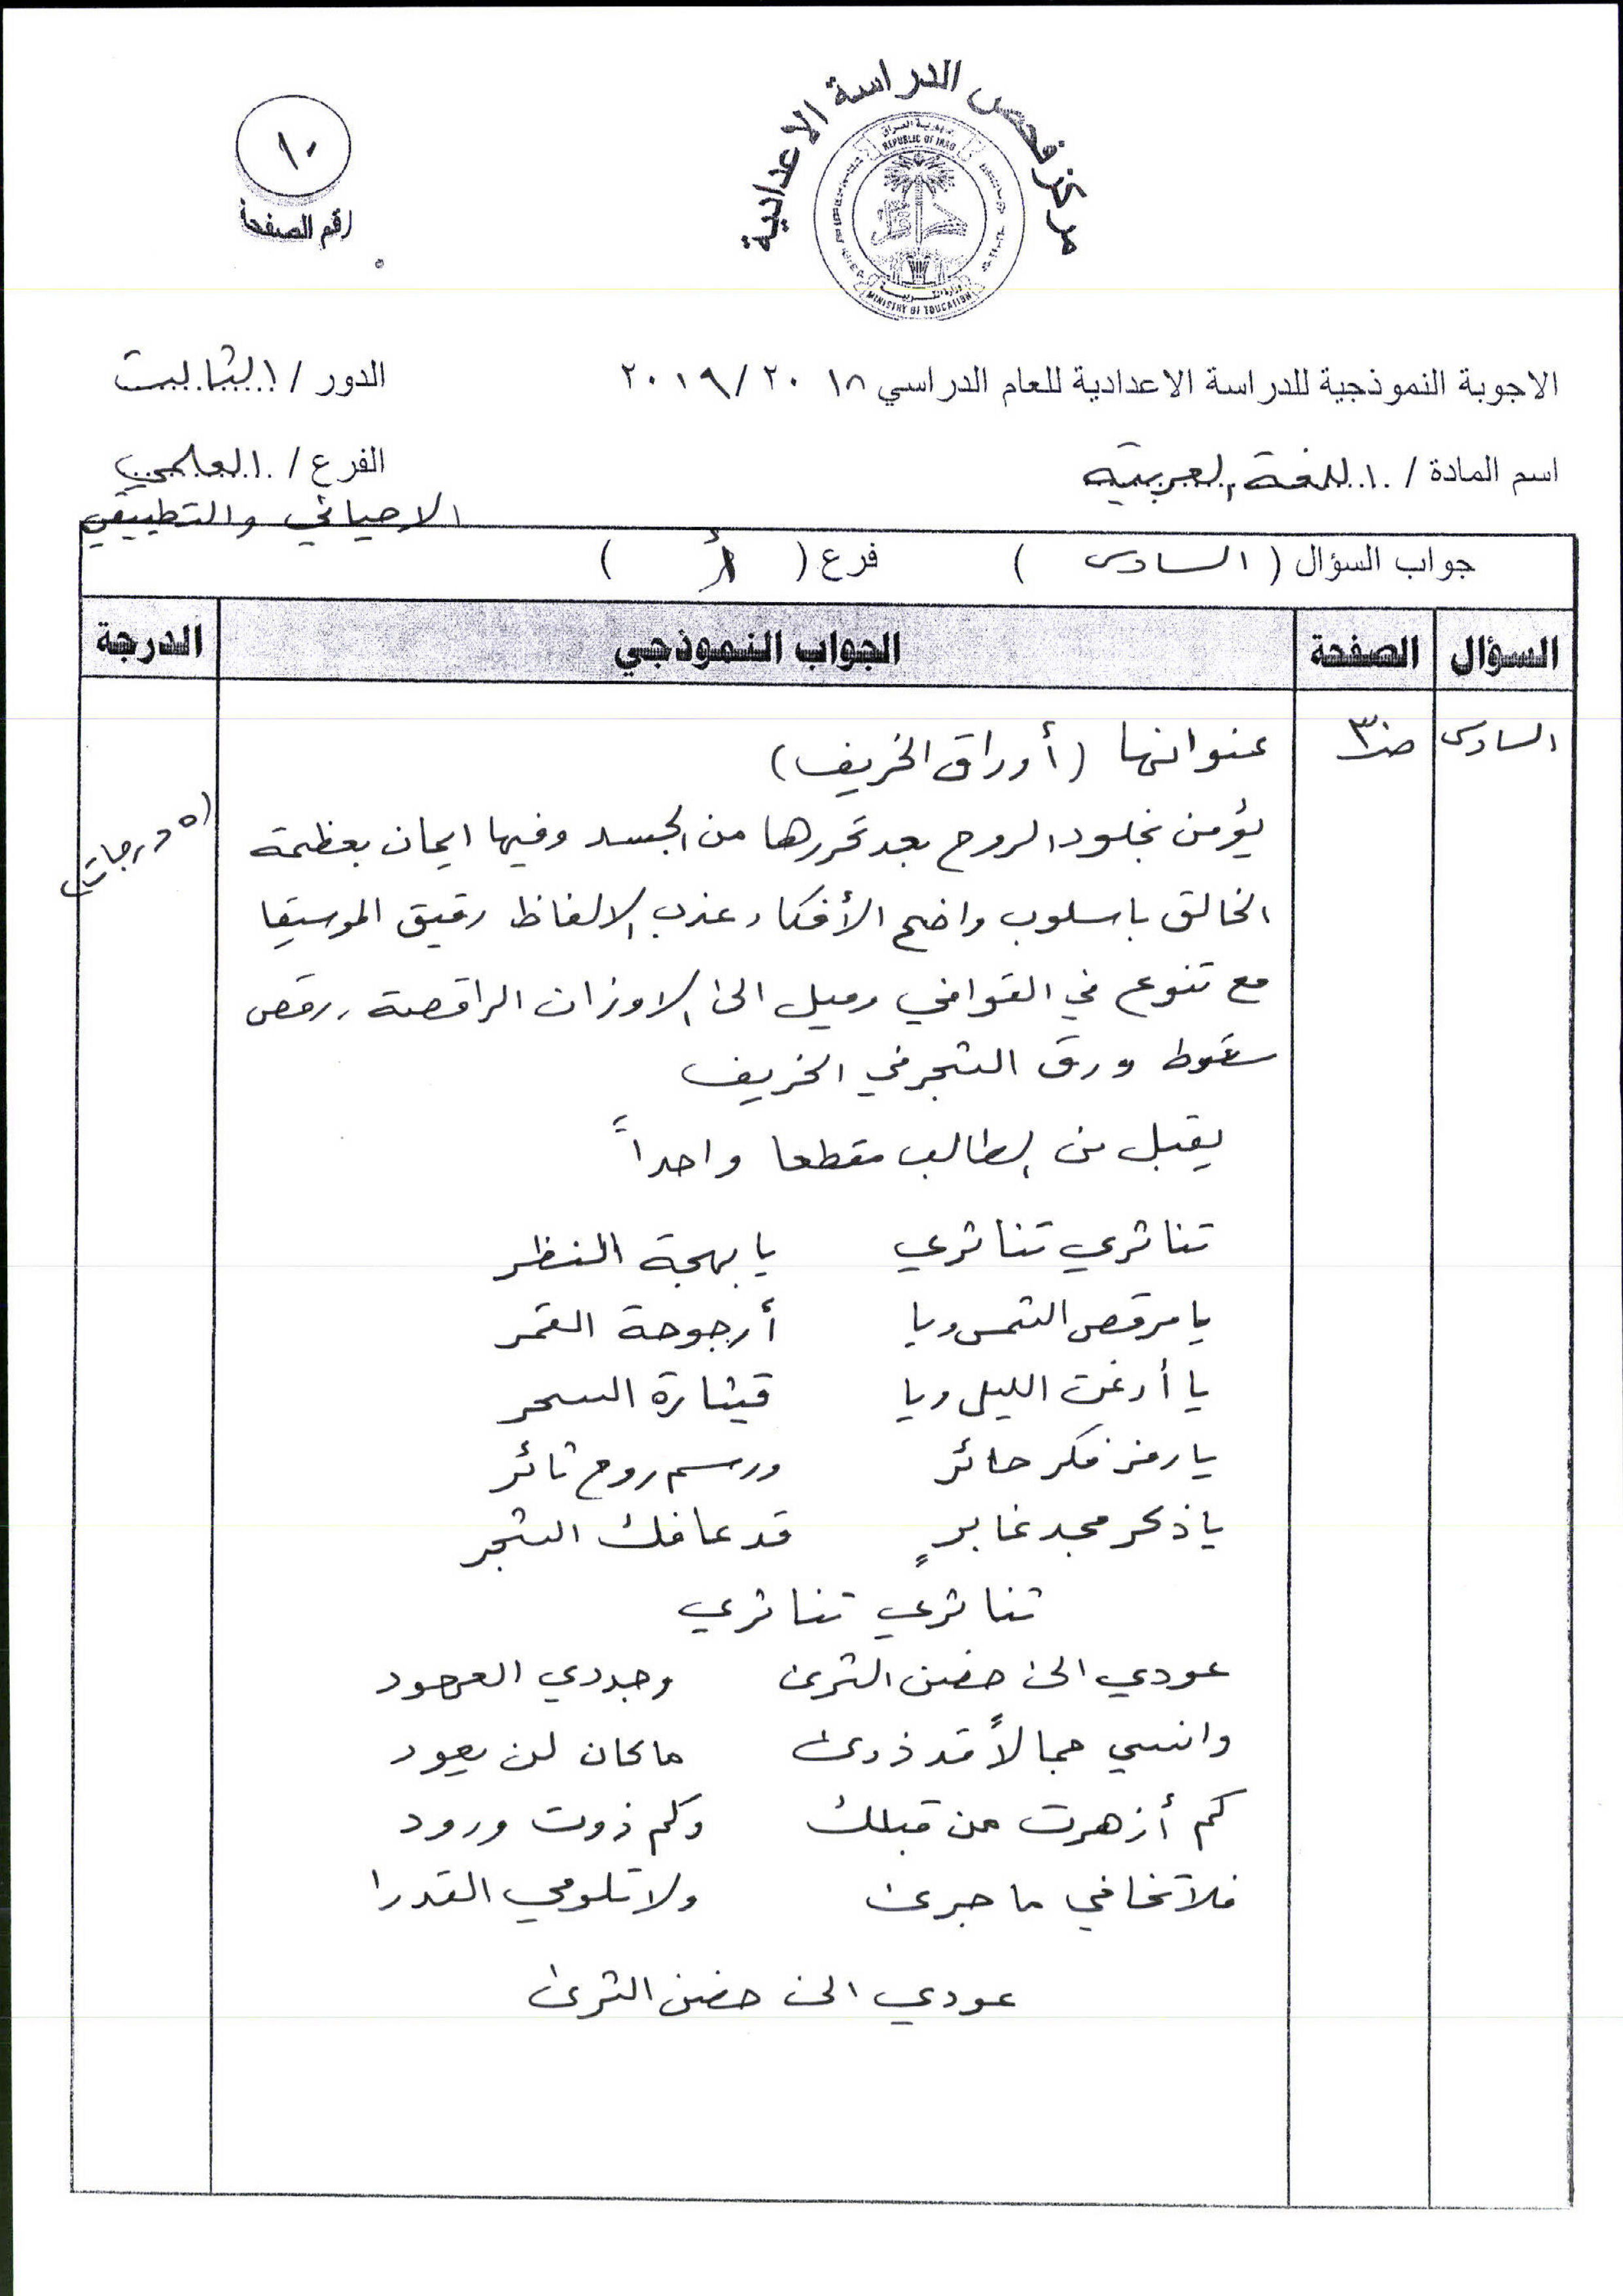 مركز فحص الدراسة الاعدادية
جمهورية العراق
REPUBLIC OF IRAQ
MINISTRY OF EDUCATION
١٠
رقم الصفحة
الاجوبة النموذجية للدراسة الاعدادية للعام الدراسي ٢٠١٨ / ٢٠١٩
الدور / الثالث
اسم المادة / اللغة العربية
الفرع / العلمي
الاحيائي والتطبيقي
جواب السؤال ( السادس ) فرع ( أ )
السؤال الصفحة الجواب النموذجي الدرجة
السادس
عنوانها (أوراق الخريف)
(٥ درجات)
يؤمن بخلود الروح بعد تحررها من الجسد وفيها ايمان بعظمة
الخالق باسلوب واضح الأفكار عذب الالفاظ رقيق الموسيقا
مع تنوع في القوافي وميل الى الاوزان الراقصة، رقص
سقوط ورق الشجر في الخريف
يقبل من الطالب مقطعا واحداً
تناثري تناثري يا بهجة النظر
يا مرقص الشمس ويا أرجوحة القمر
يا أرغن الليل ويا قيثارة السحر
يا رمز فكر حائر ورسم روح ثائر
يا ذكر مجد غابرٍ قد عافك الشجر
تناثري تناثري
عودي الى حضن الثرى وجددي العهود
وانسي جمالاً قد ذوى ما كان لن يعود
كم أزهرت من قبلك وكم ذوت ورود
فلا تخافي ما جرى ولا تلومي القدرا
عودي الى حضن الثرى